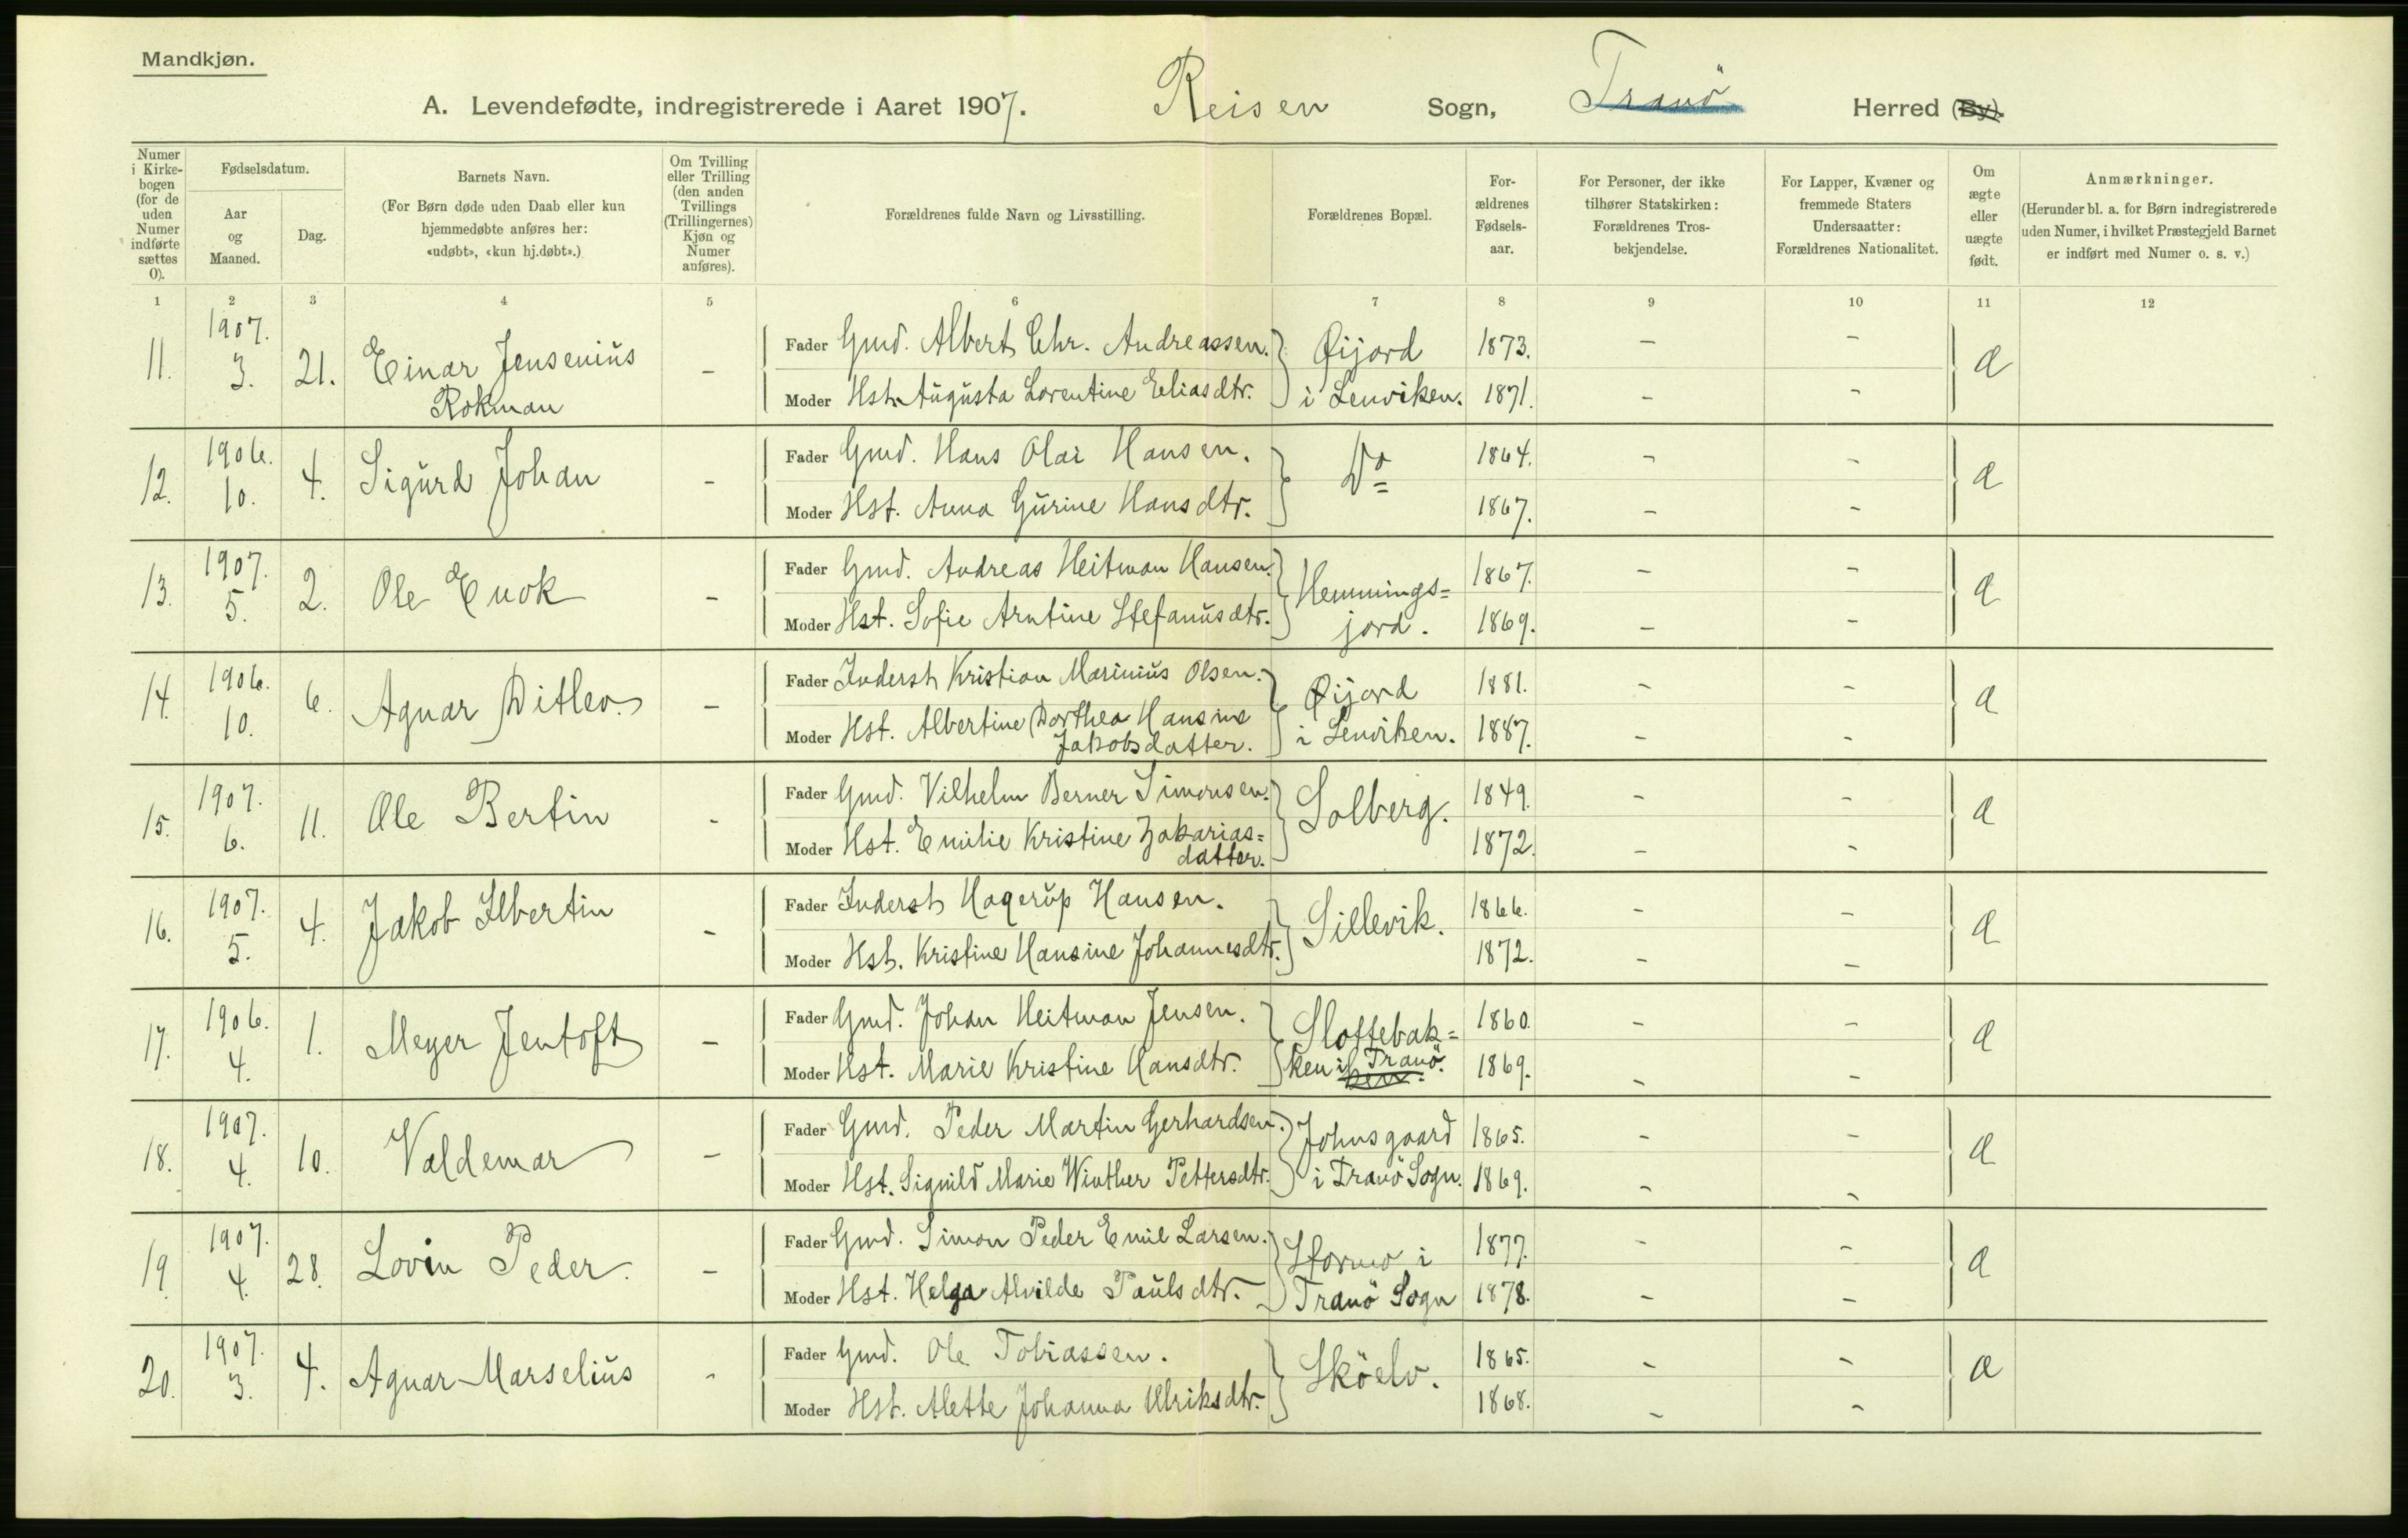 Mandkjøn.
A. Levendefødte, indregistrerede i Aaret 1907. Reisen Sogn, Tranö Herred (By).
Numer i Kirkebogen (for de uden Numer indførte sættes 0).
Fødselsdatum.
Aar og Maaned.
Dag.
Barnets Navn.
(For Børn døde uden Daab eller kun hjemmedøbte anføres her: «udøbt», «kun hj.døbt».)
Om Tvilling eller Trilling (den anden Tvillings (Trillingernes) Kjøn og Numer anføres).
Forældrenes fulde Navn og Livsstilling.
Forældrenes Bopæl.
For-ældrenes Fødsels-aar.
For Personer, der ikke tilhører Statskirken: Forældrenes Tros-bekjendelse.
For Lapper, Kvæner og fremmede Staters Undersaatter: Forældrenes Nationalitet.
Om ægte eller uægte født.
Anmærkninger.
(Herunder bl. a. for Børn indregistrerede uden Numer, i hvilket Præstegjeld Barnet er indført med Numer o. s. v.)
1 2 3 4 5 6 7 8 9 10 11 12
11. 1907. 3. 21. Einar Jensenius Rokman -
Fader Gmd. Albert Chr. Andreassen. Øijord 1873. - - a
Moder Hst. Augusta Lorentine Eliasdtr. i Lenviken. 1871. - -
12. 1906. 10. 4. Sigurd Johan -
Fader Gmd. Hans Olai Hansen. Do 1864. - - a
Moder Hst. Anna Gurine Hansdtr. 1867. - -
13. 1907. 5. 2. Ole Enok -
Fader Gmd. Andreas Heitman Hansen. Hemmings= 1867. - - a
Moder Hst. Sofie Arntine Stefanusdtr. jord. 1869. - -
14. 1906. 10. 6. Agnar Ditlev. -
Fader Inderst Kristian Marinius Olsen. Øijord 1881. - - a
Moder Hst. Albertine Dorthea Hansine Jakobsdatter. i Lenviken. 1887. - -
15. 1907. 6. 11. Ole Bertin -
Fader Gmd. Vilhelm Berner Simonsen. Solberg. 1849. - - a
Moder Hst. Emilie Kristine Zakarias=datter. 1872. - -
16. 1907. 5. 4. Jakob Ilbertin -
Fader Inderst Hagerup Hansen. Sillevik. 1866. - - a
Moder Hst. Kristine Hansine Johannesdtr. 1872. - -
17. 1906. 4. 1. Meyer Jentoft -
Fader Gmd. Johan Heitman Jensen. Slottebak= 1860. - - a
Moder Hst. Marie Kristine Hansdtr. ken i Tranö. 1869. - -
18. 1907. 4. 10. Valdemar -
Fader Gmd. Peder Martin Gerhardsen. Johnsgaard 1865. - - a
Moder Hst. Signild Marie Winther Pettersdtr. i Tranö Sogn. 1869. - -
19 1907. 4. 28. Lovin Peder. -
Fader Gmd. Simon Peder Emil Larsen. Stormo i 1877. - - a
Moder Hst. Helga Alvilde Paulsdtr. Tranö Sogn 1878. - -
20. 1907. 3. 4. Agnar Marselius -
Fader Gmd. Ole Tobiassen. Sköelv. 1865. - - a
Moder Hst. Alette Johanna Ulriksdtr. 1868. - -